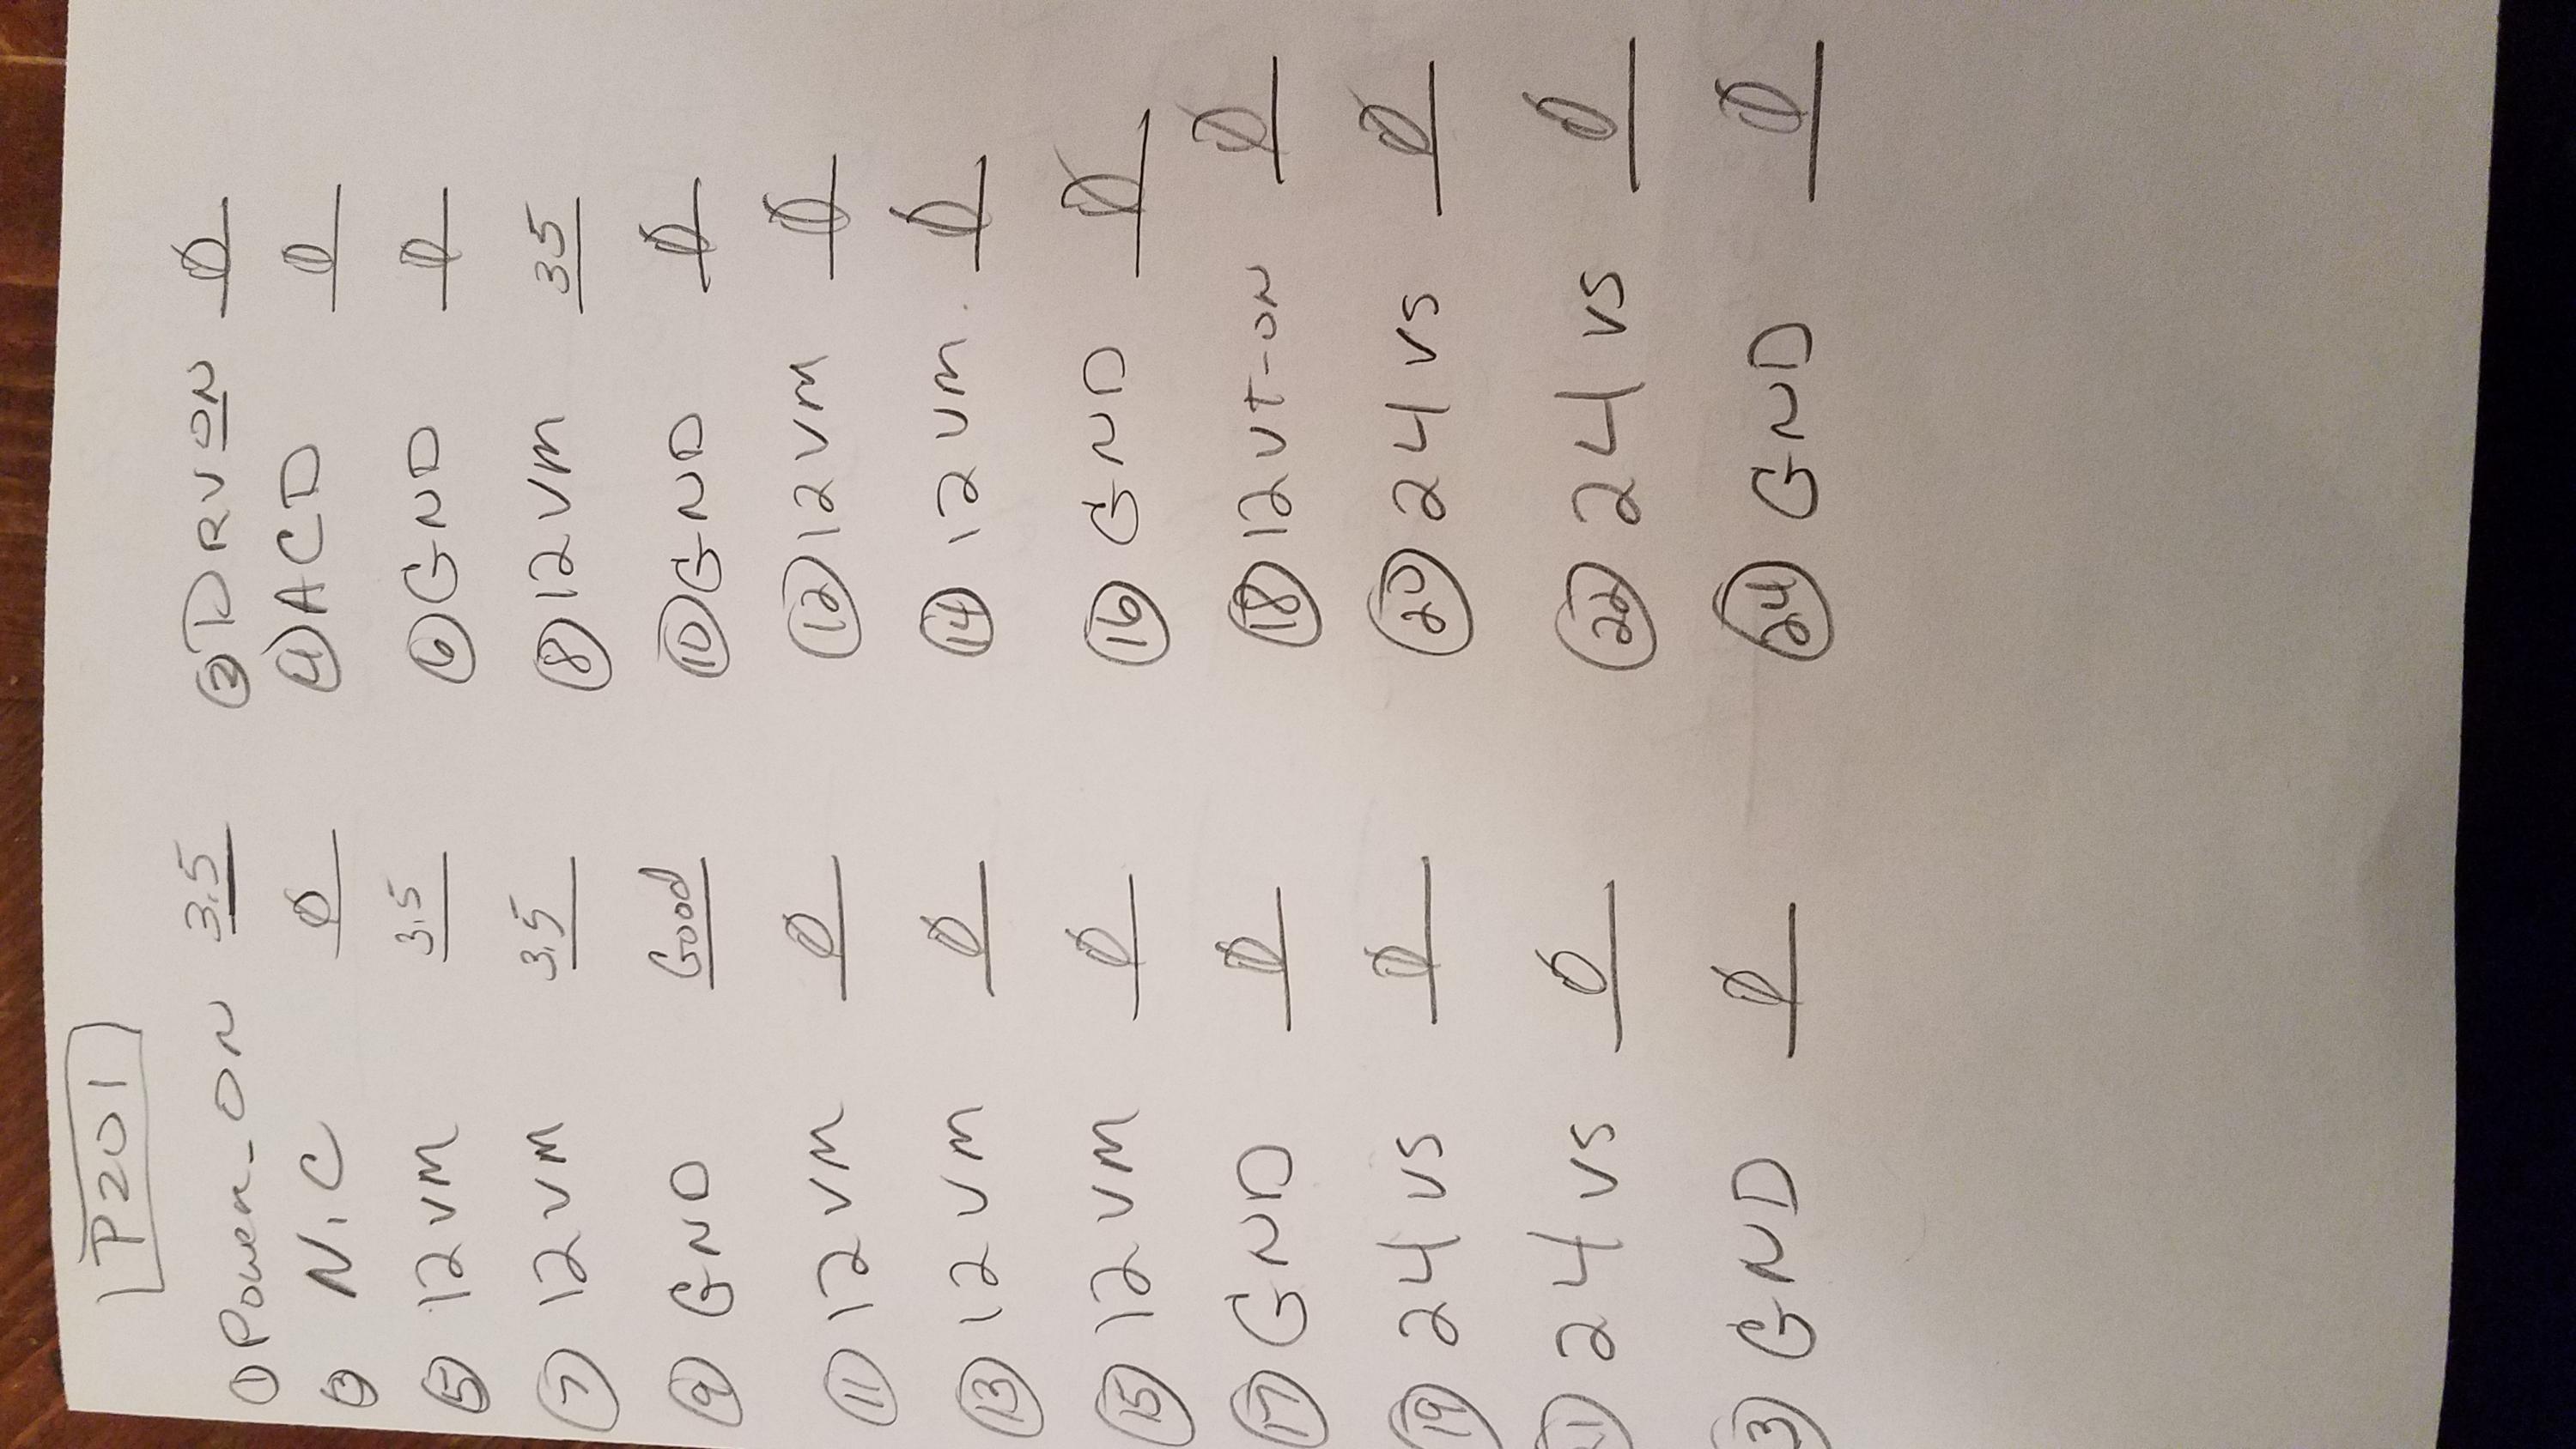 P201
① Power-ON 3.5 ② DRVON Ø
③ N.C Ø ④ ACD Ø
⑤ 12VM 3.5 ⑥ GND Ø
⑦ 12VM 3.5 ⑧ 12VM 3.5
⑨ GND Good ⑩ GND Ø
⑪ 12VM Ø ⑫ 12VM Ø
⑬ 12VM Ø ⑭ 12VM Ø
⑮ 12VM Ø ⑯ GND Ø
⑰ GND Ø ⑱ 12VT-ON Ø
⑲ 24VS Ø ⑳ 24VS Ø
1 24VS Ø ㉒ 24VS Ø
3 GND Ø ㉔ GND Ø